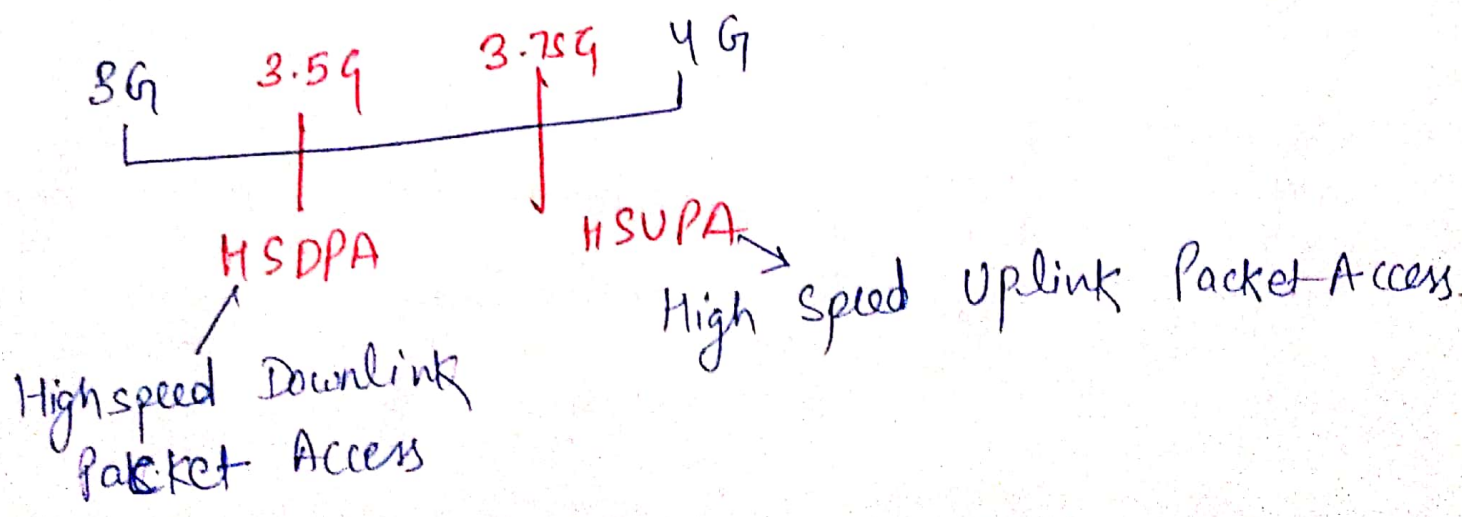 3G 3.5G 3.75G 4G
HSDPA
HSUPA
High Speed Uplink Packet Access.
High speed Downlink
Packet Access